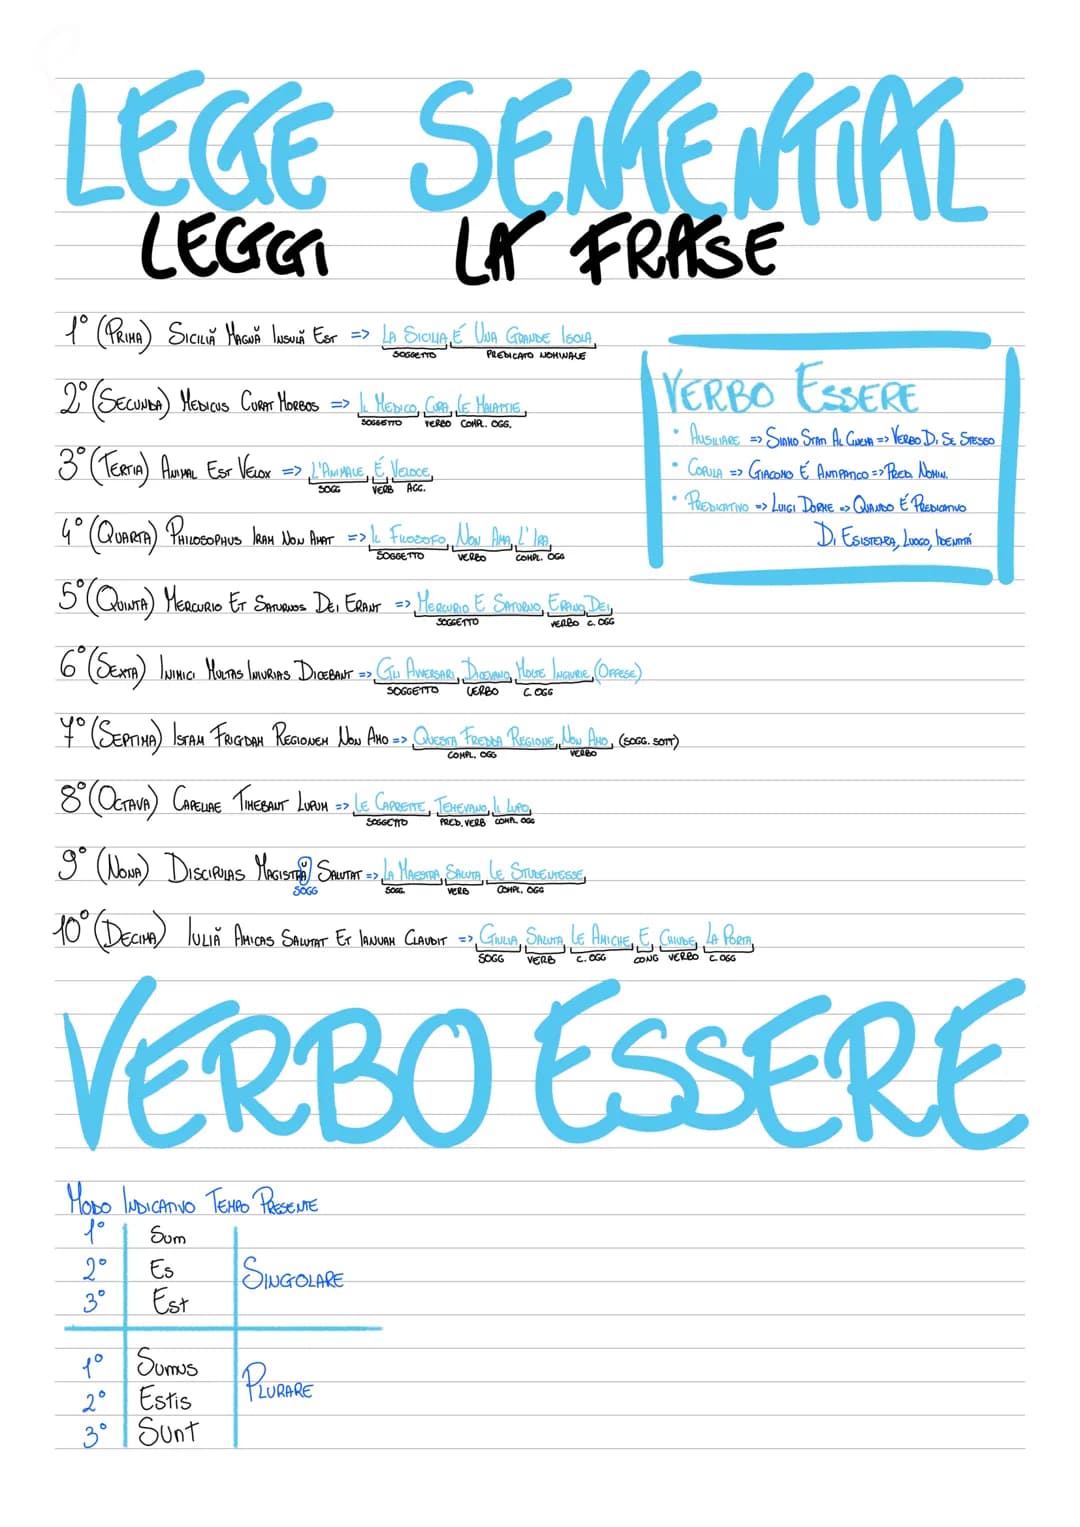 LEGGE SENTENTIAL
LEGGI LA FRASE
1° (PRIMA) SICILIĂ MAGNĂ INSULĂ EST => LA SICILIA É UNA GRANDE ISOLA
SOGGETTO PREDICATO NOMINALE
2° (SECUNDA) MEDICUS CURAT MORBOS => IL MEDICO CURA LE MALATTIE
SOGGETTO VERBO COMPL. OGG.
3° (TERTIA) ANIMAL EST VELOX => L'ANIMALE É VELOCE
SOGG VERB AGG.
4° (QUARTA) PHILOSOPHUS IRAM NON AMAT => IL FILOSOFO NON AMA L'IRA
SOGGETTO VERBO COMPL. OGG
5° (QUINTA) MERCURIO ET SATURNOS DEI ERANT => MERCURIO E SATURNO ERANO DEI
SOGGETTO VERBO C. OGG
6° (SEXTA) INIMICI MULTAS INIURIAS DICEBANT => GLI AVVERSARI DICEVANO MOLTE INGIURIE (OFFESE)
SOGGETTO VERBO C. OGG
7° (SEPTIMA) ISTAM FRIGIDAM REGIONEM NON AMO => QUESTA FREDDA REGIONE NON AMO (SOGG. SOTT)
COMPL. OGG VERBO
8° (OCTAVA) CAPELLAE TIMEBANT LUPUM => LE CAPRETTE TEMEVANO IL LUPO
SOGGETTO PRED. VERB COMPL OGG
9° (NONA) DISCIPULAS MAGISTRĂ SALUTAT => LA MAESTRA SALUTA LE STUDENTESSE
SOGG SOGG. VERB COMPL. OGG
10° (DECIMA) IULIĂ AMICAS SALUTAT ET IANUAM CLAUDIT => GIULIA SALUTA LE AMICHE E CHIUDE LA PORTA
SOGG VERB C. OGG CONG VERBO C. OGG
VERBO ESSERE
• AUSILIARE => SIAMO STATI AL CINEMA => VERBO DI SE STESSO
• COPULA => GIACOMO É ANTIPATICO => PRED. NOMIN.
• PREDICATIVO => LUIGI DORME => QUANDO É PREDICATIVO
DI ESISTENZA, LUOGO, IDENTITÁ
VERBO ESSERE
MODO INDICATIVO TEMPO PRESENTE
1° Sum
2° Es SINGOLARE
3° Est
1° Sumus
2° Estis PLURARE
3° Sunt